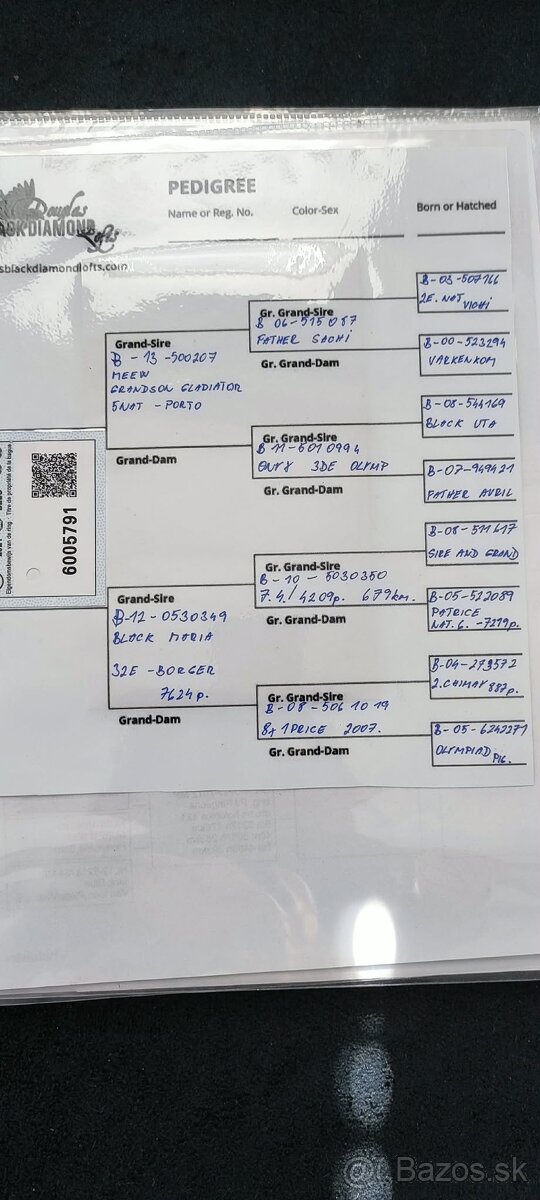 Douglas
BLACKDIAMOND
Lofts
sblackdiamondlofts.com
PEDIGREE
Name or Reg. No.
Color-Sex
Born or Hatched
6005791
Eigendomsbewijs van de ring - Titre de propriété de la bague
Grand-Sire
B - 13 - 500207
MEEW
GRANDSON GLADIATOR
5NAT - PORTO
Grand-Dam
Grand-Sire
B-12-0530349
BLACK MARIA
32E - BORGER
7624 p.
Grand-Dam
Gr. Grand-Sire
B 06-515087
FATHER SACHI
Gr. Grand-Dam
Gr. Grand-Sire
B 11-6010994
ONYX 3DE OLYMP
Gr. Grand-Dam
Gr. Grand-Sire
B-10-5030350
7.4./4209p. 679km.
Gr. Grand-Dam
Gr. Grand-Sire
B-08-5061019
8x 1 PRICE 2007.
Gr. Grand-Dam
B-03-507166
2E. NAT VICHI
B-00-523294
VARKENKOM
B-08-544169
BLACK UTA
B-07-949421
FATHER AVRIL
B-08-511617
SIRE AND GRAND
B-05-522089
PATRICE
NAT. 6. -7219p.
B-04-273572
2. CHIMAY 887p.
B-05-6242271
OLYMPIAD PIG.
Bazos.sk